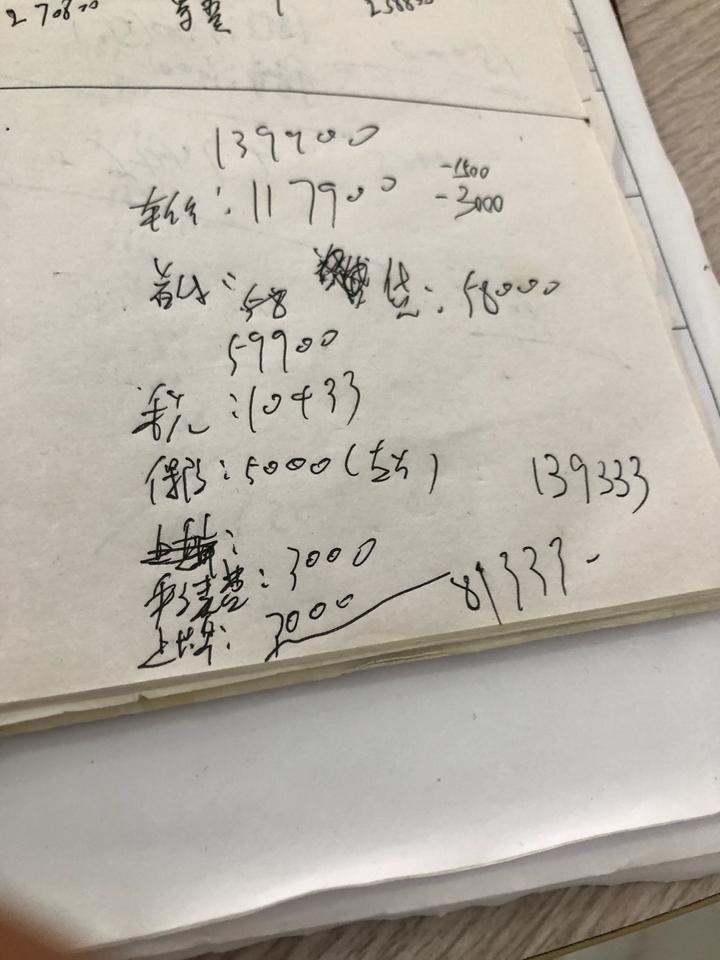 270800 258800
139900
车价：117900 -1500
-3000
首付：58 贷：58000
59900
税：10433
保险：5000（左右） 139333
上牌：
手续费：3000 81333
上牌：3000